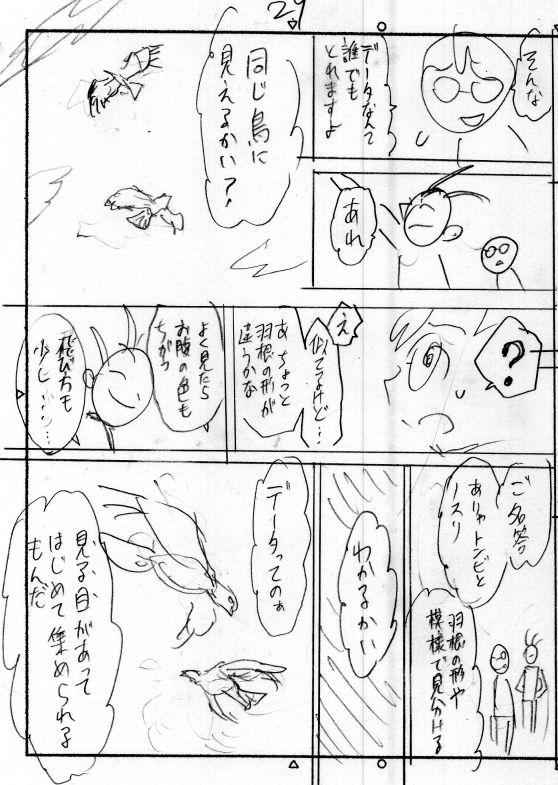 29
そんな
データなんて
誰でも
とれますよ
あれ
同じ鳥に
見えるかい?
?
え
似てるけど…
あ ちょっと
羽根の形が
違うかな
よく見たら
お腹の色も
ちがう
飛び方も
少し…
ご名答
ありゃトンビと
ノスリ
羽根の形や
模様で見分ける
わかるかい
データってのぁ
見る目があって
はじめて集められる
もんだ